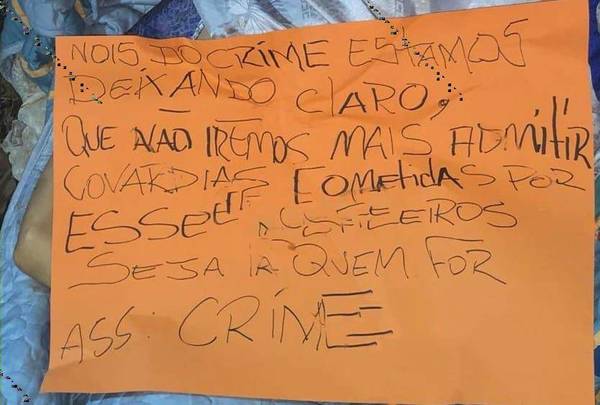 NOIS DO CRIME ESTAMOS
DEIXANDO CLARO,
QUE NÃO IREMOS MAIS ADMITIR
COVARDIAS COMETIDAS POR
SEJA lá QUEM FOR
ASS: CRIME